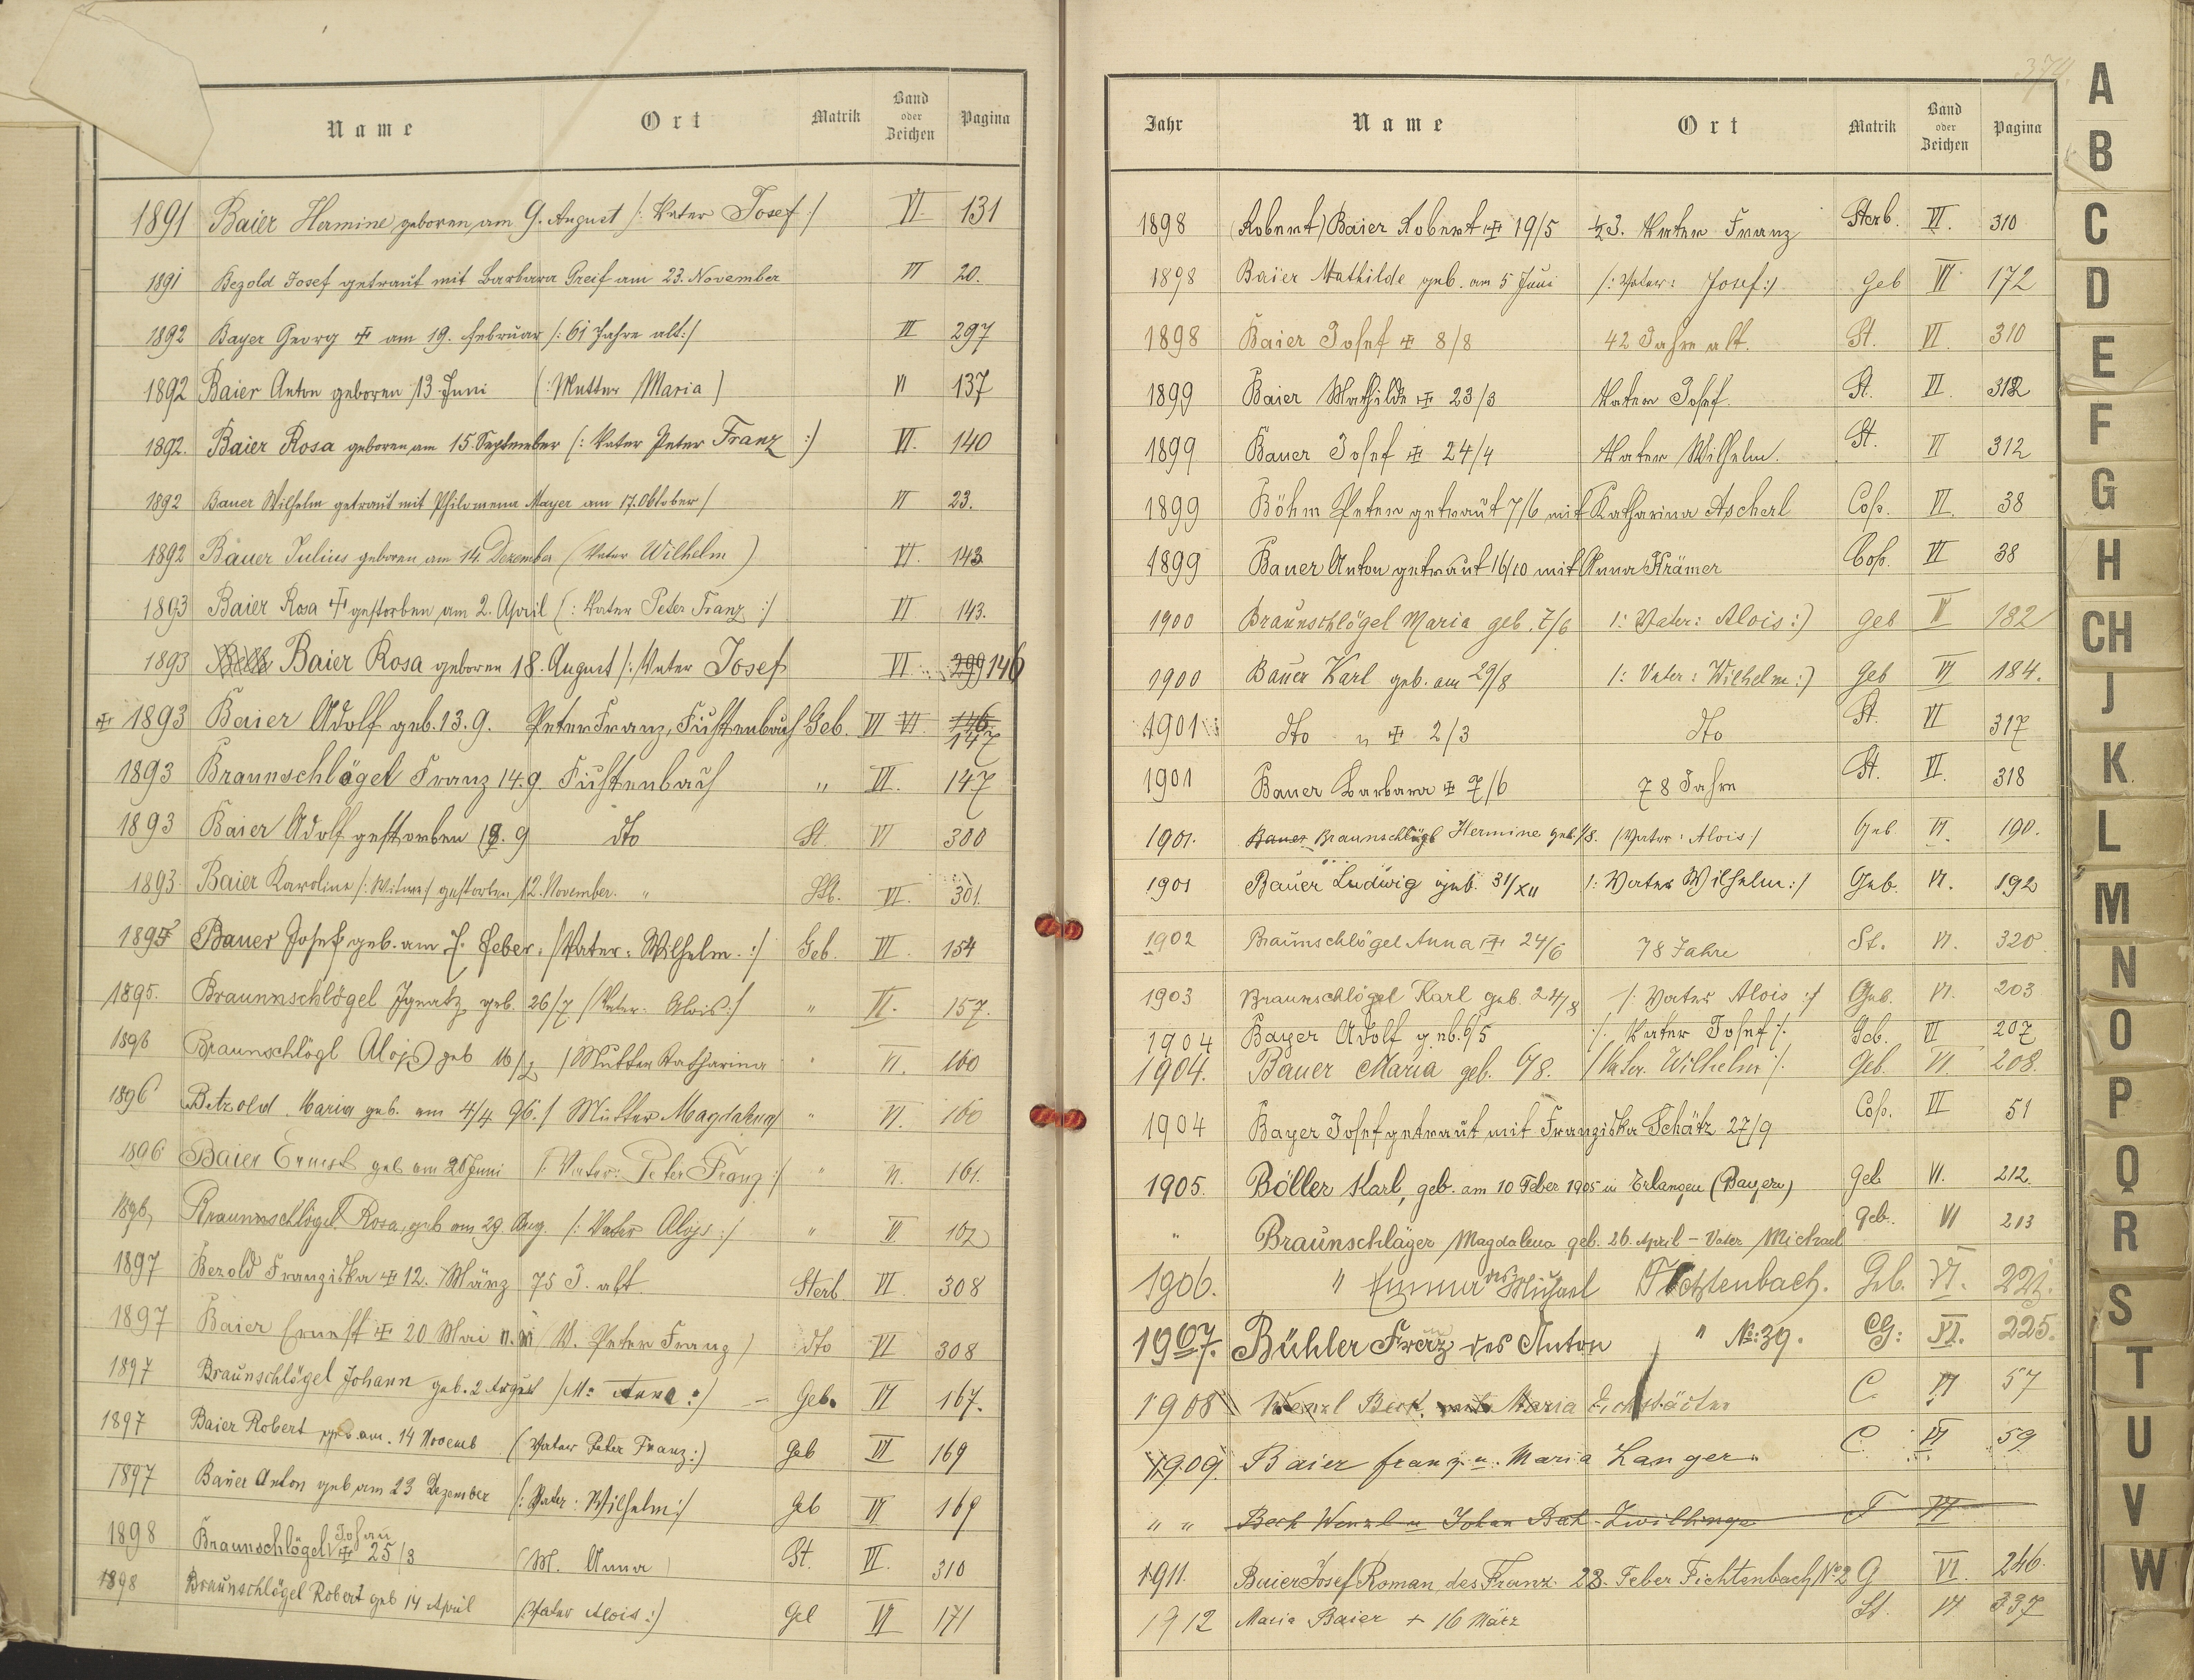 Name Ort Matrik Band oder Zeichen Pagina
1891 Baier Hermine geboren am 9. August /: Vater Josef :/ VI. 131
1891 Bezold Josef getraut mit Barbara Greif am 23. November VI 20.
1892 Bayer Georg ☩ am 19. Februar /: 61 Jahre alt :/ VI 297
1892 Baier Anton geboren 13 Juni (: Mutter Maria ) VI 137
1892. Baier Rosa geboren am 15. September (: Vater Peter Franz :) VI. 140
1892 Bauer Wilhelm getraut mit Philomena Mayer am 17. Oktober / VI 23.
1892 Bauer Julius geboren am 14. Dezember ( Vater Wilhelm ) VI. 143
1893 Baier Rosa ☩ gestorben am 2. April (: Vater Peter Franz :/ VI 143.
1893 Baier Rosa geboren 18. August /: Vater Josef VI. 299 146
☩ 1893 Baier Adolf geb. 13. 9. Peter Franz, Fichtenbach Geb. VI VI 146 147
1893 Braunschlögel Franz 14. 9. Fichtenbach " VI. 147
1893 Baier Adolf gestorben 18. 9 dto St. VI 300
1893 Baier Karoline /: Witwe :/ gestorben 12. November. " St. VI. 301.
1895 Bauer Josef geb. am 7. Feber. /: Vater: Wilhelm. :/ Geb. VI. 154
1895. Braunnschlögel Ignatz geb. 26/7 (Vater: Alois :/ " VI. 157.
1896 Braunschlögl Alois geb 16/2 / Mutter Katharina " VI. 160
1896 Betzold Maria geb. am 4/4 96. / Mutter Magdalena " VI. 160
1896 Baier Ernest geb am 20 Juni /: Vater: Peter Franz :/ " VI. 161.
1896, Braunnschlögel Rosa, geb am 29 Aug. /: Vater Alojs :/ " VI 162
1897 Bezold Franziska ☩ 12. März 75 J. alt Sterb VI. 308
1897 Baier Ernest ☩ 20 Mai ( V. Peter Franz ) dto VI 308
1897 Braunschlögel Johann geb. 2 August /M: Anna :/ Geb. VI 167.
1897 Baier Robert geb. am. 14 Novemb ( Vater Peter Franz :) Geb VI 169
1897 Bauer Anton geb am 23 Dezember /: Vater: Wilhelm :/ Geb VI 169
1898 Braunschlögel Johan ☩ 25/3 ( M. Anna ) St. VI. 310
1898 Braunschlögel Robert geb 14 April (Vater Alois :) Geb VI 171
374
Jahr Name Ort Matrik Band oder Zeichen Pagina
1898 (Robert) Baier Robert ☩ 19/5 Vater Franz Sterb. VI. 310
1898 Baier Mathilde geb. am 5 Juni /: Vater: Josef :/ geb VI 172
1898 Baier Josef ☩ 8/8 42 Jahre alt. St. VI. 310
1899 Baier Mathilde ☩ 23/3 Vater Josef. St. VI. 312
1899 Bauer Josef ☩ 24/4 Vater Wilhelm. St. VI 312
1899 Böhm Peter getraut 7/6 mit Katharina Ascherl Cop. VI. 38
1899 Bauer Anton getraut 16/10 mit Anna Krämer Cop. VI 38
1900 Braunschlögel Maria geb. 7/6 /: Vater: Alois :) geb VI 182
1900 Bauer Karl geb. am 29/8 /: Vater: Wilhelm :) Geb VI 184.
1901 dto " ☩ 2/3 dto St. VI 317
1901 Bauer Barbara ☩ 7/6 78 Jahre St. VI. 318
1901. Bauer Braunschlögl Hermine geb. 1/8. (Vater: Alois / Geb VI. 190.
1901 Bauer Ludwig geb. 31/XII /: Vater Wilhelm :/ Geb. VI. 192
1902 Braunschlögel Anna ☩ 24/6 78 Jahre St. VI. 320
1903 Braunschlögel Karl geb. 24/8 /: Vater Alois :/ Geb. VI. 203
1904 Bayer Adolf geb. 6/5 /. Vater Josef /. Geb. VI 207
1904. Bauer Maria geb. 6/8. / Vater. Wilhelm /. Geb. VI. 208.
1904 Bayer Josef getraut mit Franziska Schätz 27/9 Cop. VI 51
1905. Böller Karl, geb. am 10 Feber 1905 in Erlangen (Bayern) geb VI. 212.
" Braunschläger Magdalena geb. 26. April - Vater Michael geb. VI 213
1906. " Emma des Michael Fichtenbach. Geb. VI. 221.
1907. Bühler Franz des Anton " No: 39. G: VI. 225.
1908 Wenzl Beck. mit Maria Eichstädter C. VI 57
1909 Baier Franz u. Maria Langer. C. VI 59
" " Beck Wenzl u Johan Zwillinge T VI
1911. Baier Josef Roman des Franz. 28. Feber Fichtenbach No 2 G VI. 246.
1912 Maria Baier + 16 März St. VI 337
A
B
C
D
E
F
G
H
CH
J
K
L
M
N
O
P
Q
R
S
T
U
V
W